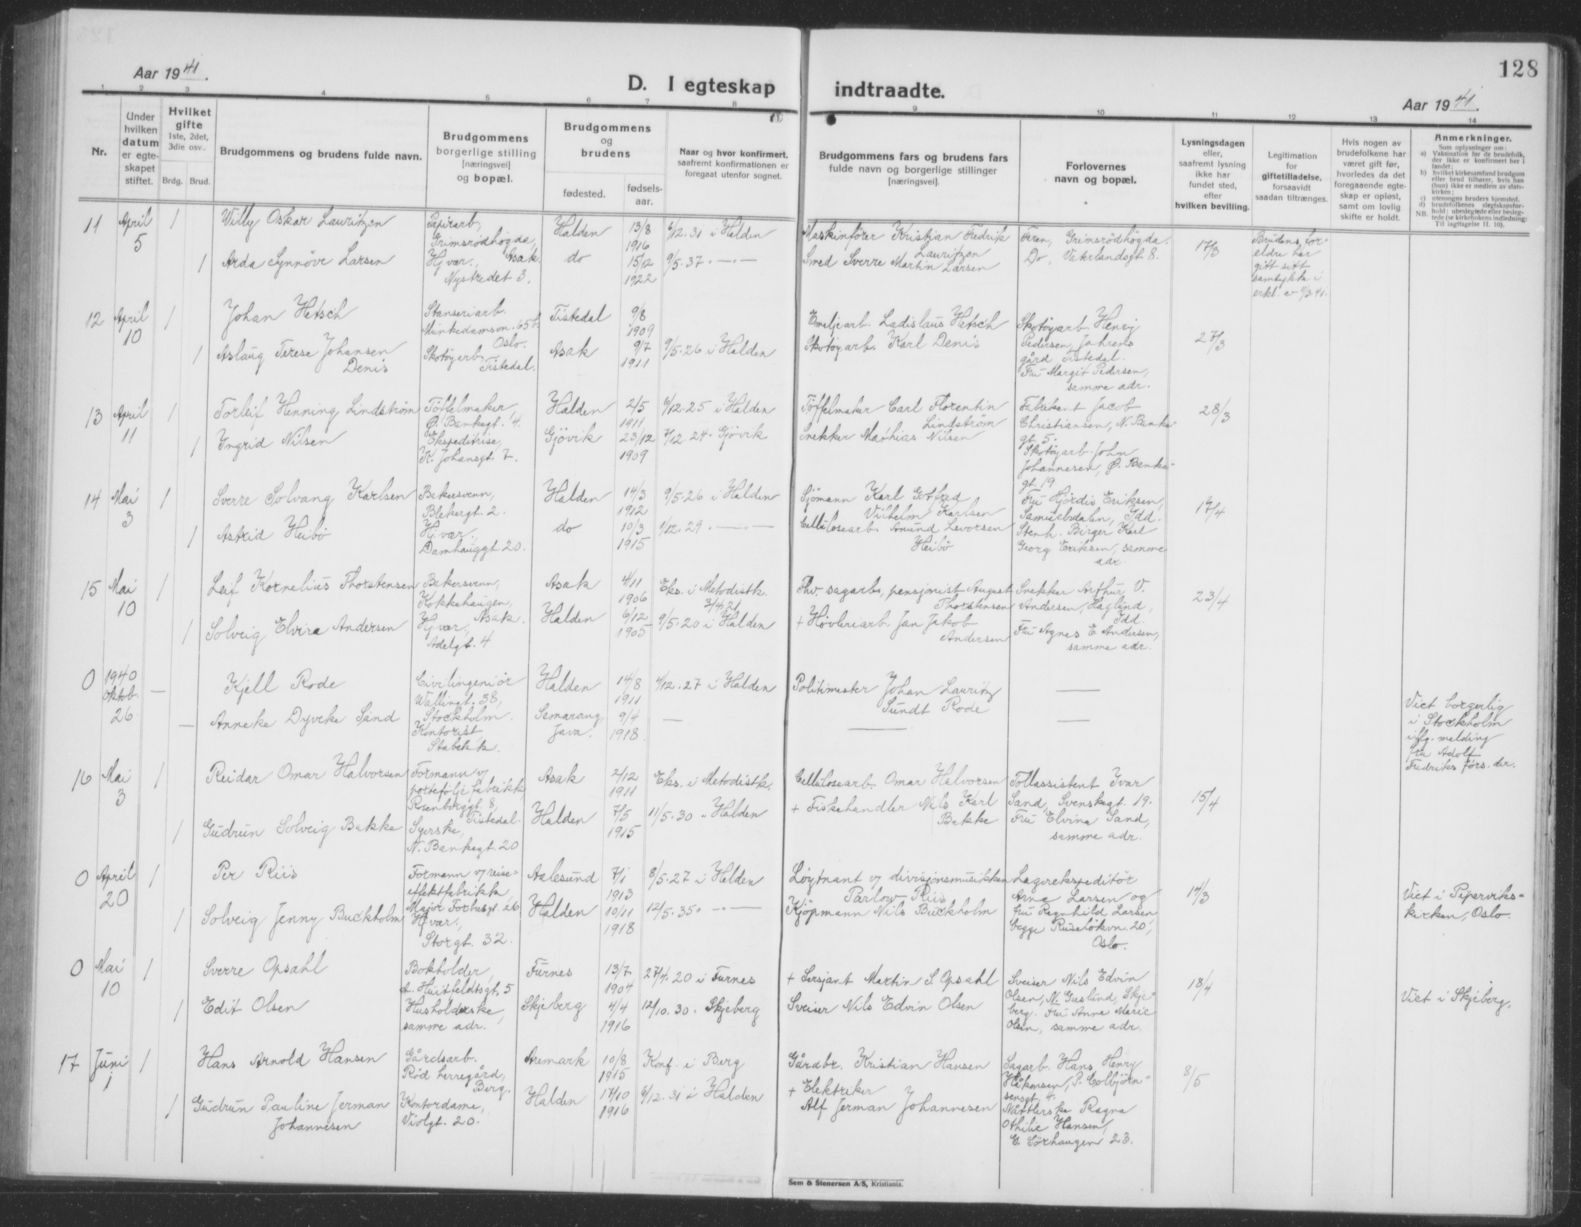 128
Aar 1941.
D. I egteskap indtraadte.
Aar 1941.
1 2 3 4 5 6 7 8 9 10 11 12 13 14
Nr.
Under hvilken datum er egteskapet stiftet.
Hvilket gifte 1ste, 2det, 3die osv.
Brdg. Brud.
Brudgommens og brudens fulde navn.
Brudgommens borgerlige stilling [næringsvei] og bopæl.
Brudgommens og brudens
fødested.
fødsels-aar.
Naar og hvor konfirmert, saafremt konfirmationen er foregaat utenfor sognet.
Brudgommens fars og brudens fars fulde navn og borgerlige stillinger [næringsvei].
Forlovernes navn og bopæl.
Lysningsdagen eller, saafremt lysning ikke har fundet sted, efter hvilken bevilling.
Legitimation for giftetilladelse, forsaavidt saadan tiltrænges.
Hvis nogen av brudefolkene har været gift før, hvorledes da det foregaaende egteskap er opløst, samt om lovlig skifte er holdt.
Anmerkninger.
Som oplysninger om:
11 April 5
1 Willy Oskar Lauritzen
Papirarb. Grimsrødhøgda, Asak
Halden 13/8 1916
6/12.31 i Halden
Maskinfører Kristian Fredrik Lauritzen
Faren, Grimsrødhøgda.
17/3
Brudens foreldre har gitt sitt samtykke i
1 Arda Synnøve Larsen
Hj.vær., Nystredet 3.
do 15/2 1922
9/5.37. — —
Smed Sverre Martin Larsen
Do, Vaterlandsgt 8.
12 April 10
1 Johan Hetsch
Stanseriarb. Munkedamsv. 65 b. Oslo.
Tistedal 9/8 1909
Emaljearb. Ladislaus Hetsch
Skotøyarb. Henry Pedersen, gård Tistedal.
27/3
1 Aslaug Terese Johansen Denis
Skotøyarb. Tistedal.
Asak 9/7 1911
9/5.26 i Halden
Skotøyarb. Karl Denis
Fru Margit Pedersen, samme adr.
13 April 11
1 Torleif Henning Lindstrøm
Tøffelmaker Ø. Bankegt. 4.
Halden 2/5 1911
6/12.25 i Halden
Tøffelmaker Carl Florentin Lindstrøm
Fabrikant Jacob Christiansen, N. Bankegt. 5.
28/3
1 Ingrid Nilsen
Ekspeditrise, K. Johansgt. 7.
Gjövik 23/12 1909
7/12 24. Gjövik
Snekker Mathias Nilsen
Skotøyarb. John Johannesen, Ø. Bankegt. 19
14 Mai 3
1 Sverre Solvang Karlsen
Bakersvenn, Blakergt. 2.
Halden 14/3 1912
9/5.26 i Halden
Sjømann Karl Gotfred Vilhelm Karlsen
Fru Hjørdis Eriksen, Samuelsdalen, Idd.
17/4
1 Astrid Heibø
Hj.vær., Damhauggt 20.
do 10/3 1915
1/12.29. — —
Cellulosearb. Amund Levorsen Heibø
Stenh. Birger Karl Georg Eriksen, samme adr.
15 Mai 10
1 Leif Kornelius Thorstensen
Bakersvenn, Kokkehaugen, Asak.
Asak 4/11 1906
Eks. i Metodistk. 3/4 21
Fhv. sagarb., pensjonist August Thorstensen
Snekker Arthur V. Andersen, Haglund, Idd.
23/4
1 Solveig Elvira Andersen
Hj.vær., Adelgt. 4
Halden 6/12 1905
9/5.20 i Halden
+ Høvleriarb Jan Jakob Andersen
Fru Agnes E Andersen, samme adr.
0 1940 Oktob 26
— Kjell Rode
Civilingeniør Wallingt. 38, Stockholm.
Halden 14/8 1911
4/12.27 i Halden
Politimester Johan Lauritz Sundt Rode
—
Viet borgerlig i Stockholm iflg. melding fra Adolf Fredriks førs. dir.
— Anneke Dyveke Sand
Kontorist Stabekk.
Semarang Java. 9/4 1918.
—
—
—
16 Mai 3
1 Reidar Omar Halvorsen
Formann v/ portefølje fabrikk Rosenborggt. 8, Tistedal.
Asak 2/12 1911
Eks. i Metodistk.
Cellulosearb. Omar Halvorsen
Tollassistent Ivar Sand, Svenskegt. 19.
15/4
1 Gudrun Solveig Bakke
Syerske, N. Bankegt. 20
Halden 7/5 1915
11/5.30 i Halden
+ Fiskehandler Nils Karl Bakke
Fru Elvina Sand, samme adr.
0 April 20
1 Per Riis
Formann v/ reiseeffektfabrikk Major Forbusgt 16
Aalesund 7/1 1913
8/5.27 i Halden
Løytnant v/ divisjonsmusikken Parlow Riis
Lagerekspeditør Arne Larsen og
14/3
Viet i Piperviks-kirken, Oslo.
1 Solveig Jenny Buckholm
Hj.vær., Storgt. 32.
Halden 10/11 1918
12/5.35. — —
Kjöpmann Nils Buckholm
fru Ragnhild Larsen begge Ruseløkvn. 20, Oslo.
0 Mai 10
1 Sverre Opsahl
Bokholder, A. Huitfeldtsgt. 5
Furnes 13/7 1904
27/4.20 i Furnes
+ Sersjant Martin S. Opsahl
Sveiser Nils Edvin Olsen, N. Guslund, Skjeberg.
18/4
Viet i Skjeberg.
1 Edit Olsen
Husholderske, samme adr.
Skjeberg 4/4 1916
12/10.30. Skjeberg
Sveiser Nils Edvin Olsen
Fru Anna Marie Olsen, samme adr.
17 Juni 1
1 Hans Arnold Hansen
Gårdsarb. Rød herregård, Berg.
Aremark 10/8 1915
Konf. i Berg
Gårdbr. Kristian Hansen
Sagarb. Hans Henry Håkensen, P. Colbjørnsensgt. 4.
8/5
1 Gudrun Pauline Jerman Johannesen
Kontordame, Violgt. 20.
Halden 17/10 1916
6/12.31 i Halden
+ Elektriker Alf Jerman Johannesen
Ragna Othilie Hansen,
Sem & Stenersen A/S, Kristiania.